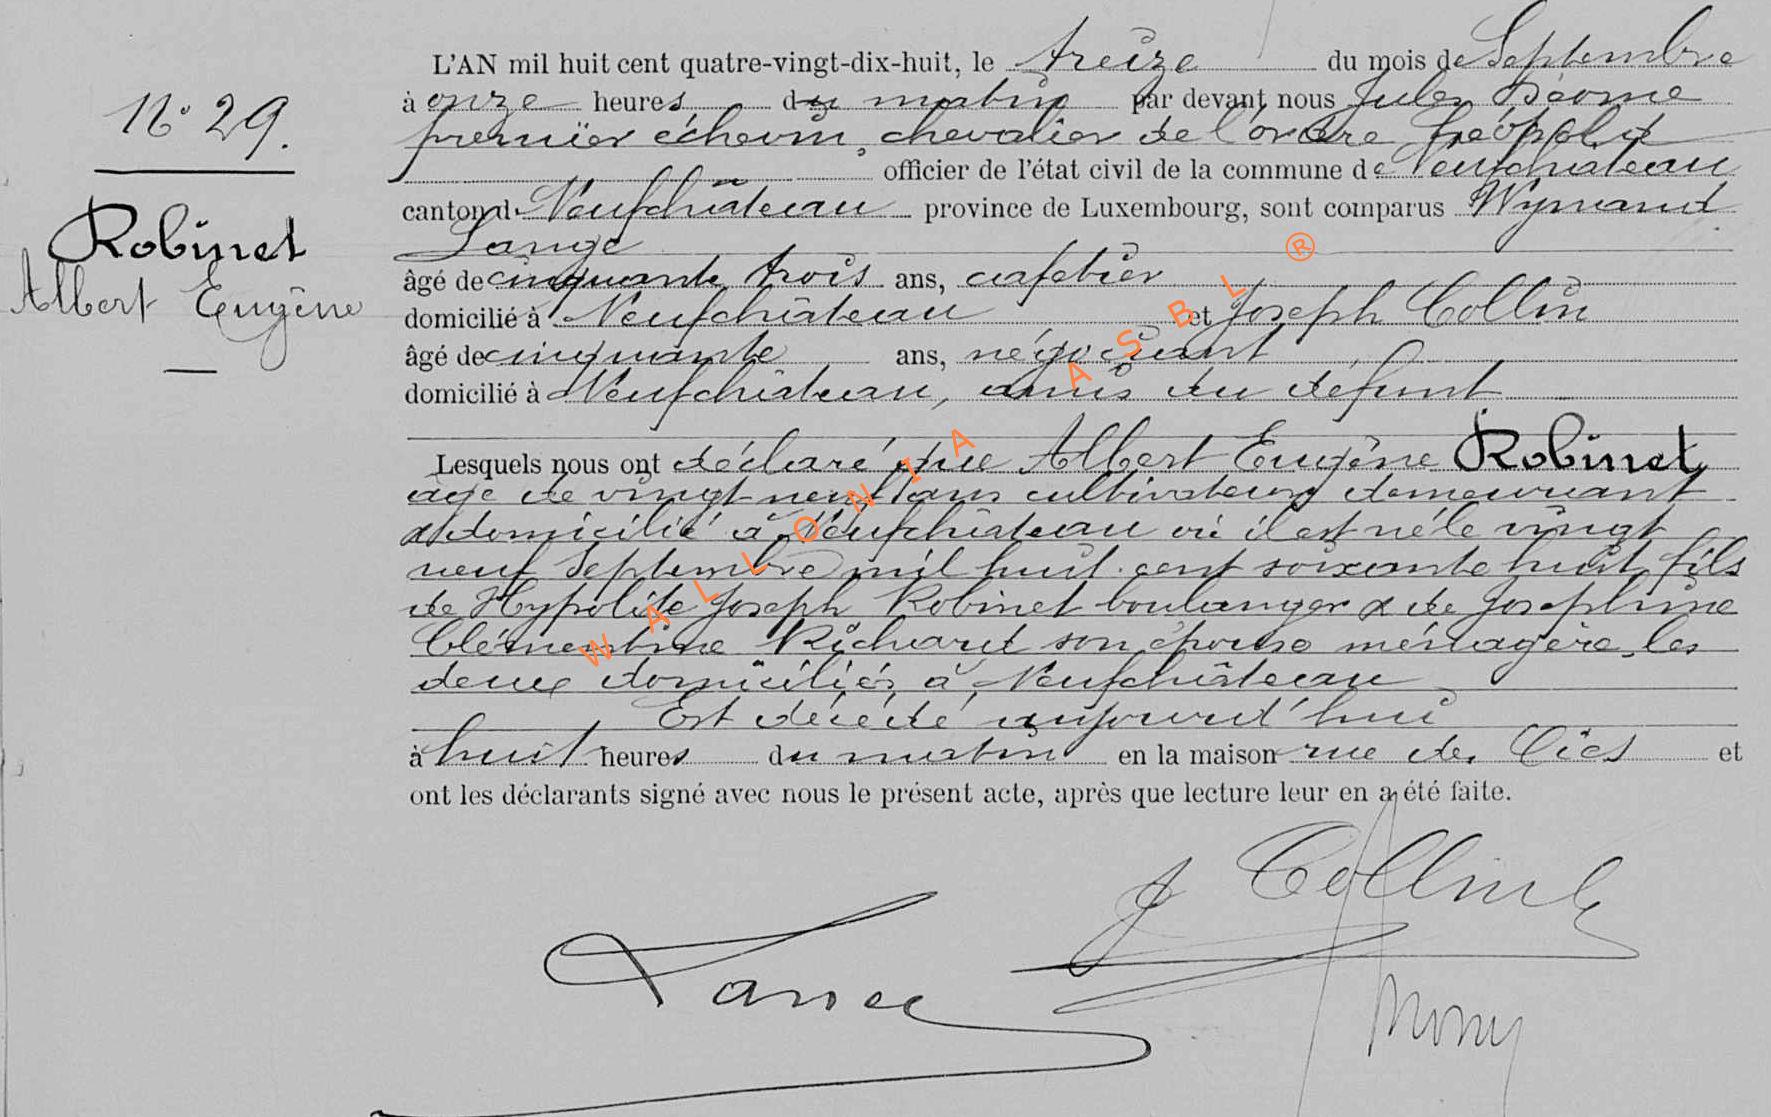 N° 29.
Robinet
Albert Eugène
L'AN mil huit cent quatre-vingt-dix-huit, le treize du mois de Septembre
à onze heures du matin par devant nous Jules
premier échevin, chevalier de l'ordre Léopold
officier de l'état civil de la commune de Neufchâteau
canton de Neufchâteau province de Luxembourg, sont comparus Wynand
Lange
âgé de cinquante trois ans, cafetier
domicilié à Neufchâteau et Joseph Collin
âgé de cinquante ans, négociant
domicilié à Neufchâteau, amis du défunt
Lesquels nous ont déclaré que Albert Eugène Robinet
âgé de vingt neuf ans cultivateur demeurant
& domicilié à Neufchâteau où il est né le vingt
neuf Septembre mil huit cent soixante huit fils
de Hypolite Joseph Robinet boulanger & de Joséphine
Clémentine Richard son épouse ménagère, les
deux domiciliés à Neufchâteau
Est décédé aujourd'hui
à huit heures du matin en la maison rue des et
ont les déclarants signé avec nous le présent acte, après que lecture leur en a été faite.
J Collin
Lange
WALLONIA ASBL ®